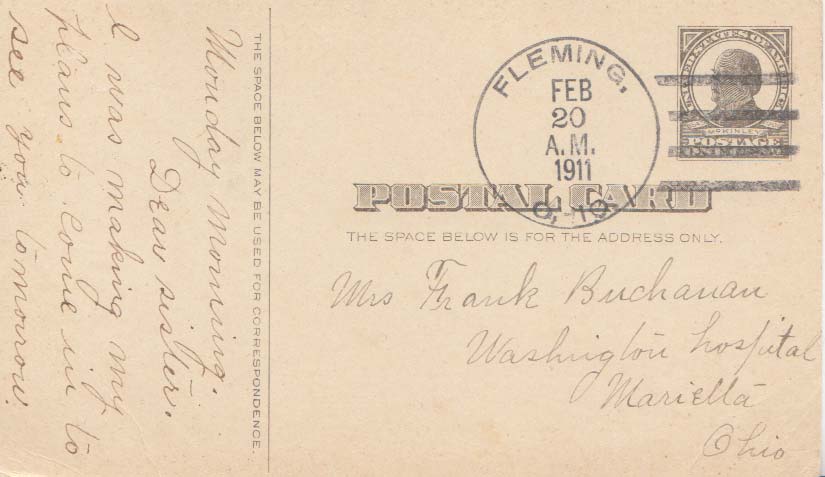 THE SPACE BELOW MAY BE USED FOR CORRESPONDENCE.
Monday Morning.
Dear sister.
I was making my
plans to come in to
see you tomorrow.
FLEMING,
FEB
20
A.M.
1911
O, IO.
McKINLEY
POSTAGE
POSTAL CARD
THE SPACE BELOW IS FOR THE ADDRESS ONLY.
Mrs Frank Buchanan
Washington hospital
Marietta
Ohio